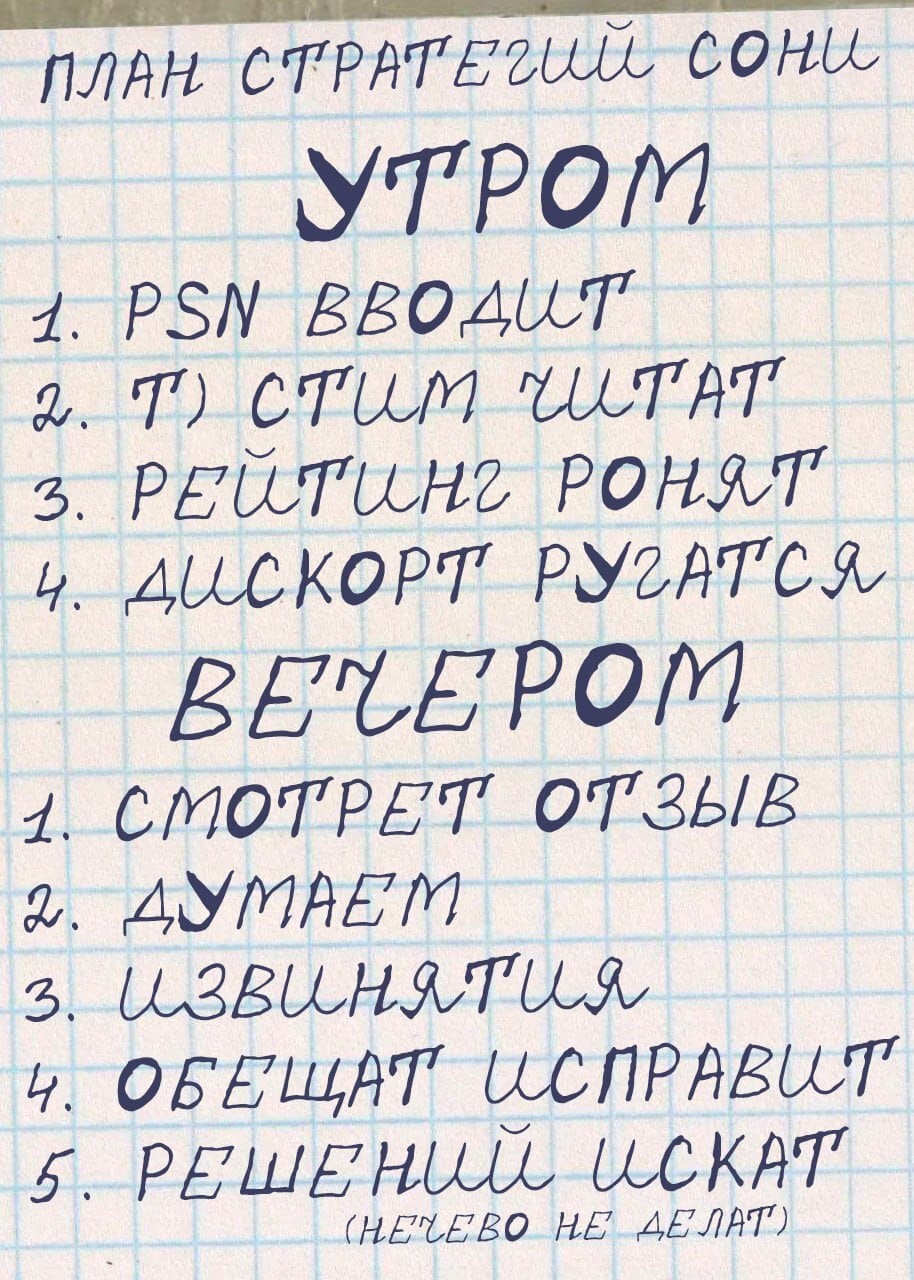 ПЛАН СТРАТЕГИЙ СОНИ
УТРОМ
1. PSN ВВОДИТ
2. Т) СТИМ ЧИТАТ
3. РЕЙТИНГ РОНЯТ
4. ДИСКОРТ РУГАТСЯ
ВЕЧЕРОМ
1. СМОТРЕТ ОТЗЫВ
2. ДУМАЕМ
3. ИЗВИНЯТИЯ
4. ОБЕЩАТ ИСПРАВИТ
5. РЕШЕНИЙ ИСКАТ
(НЕЧЕВО НЕ ДЕЛАТ)